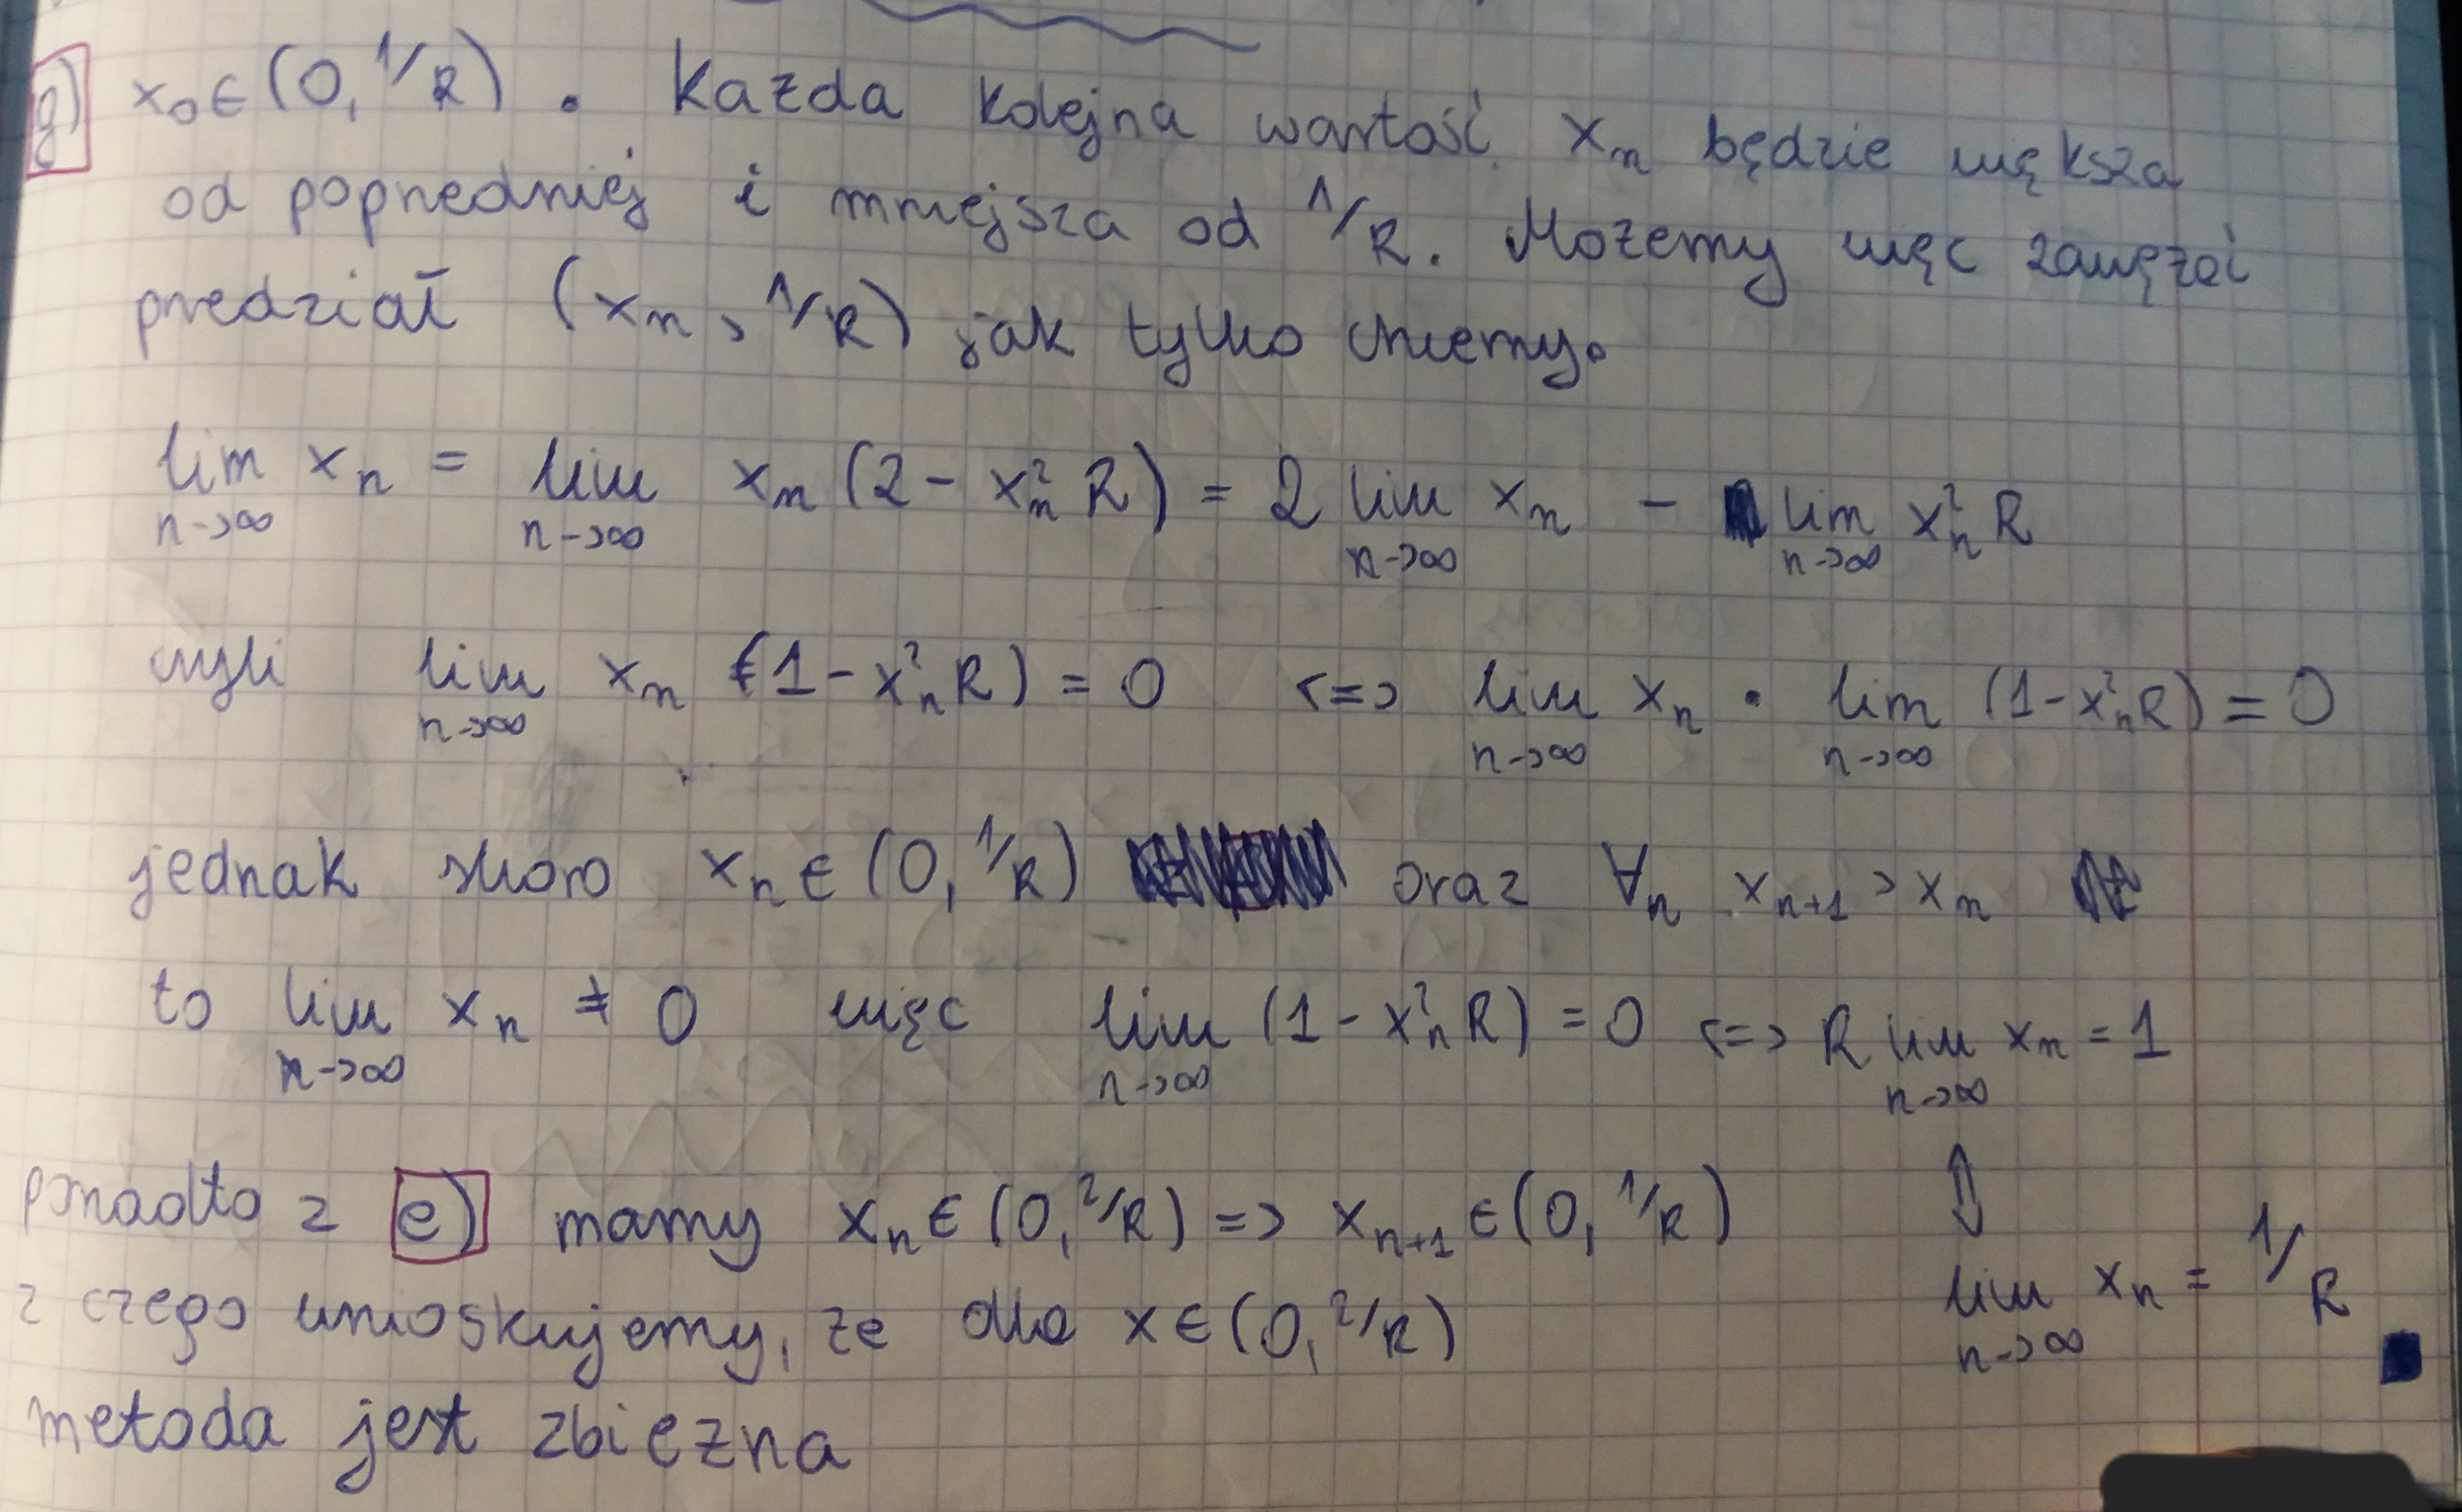 g) x₀ ∈ (0, 1/R) . Każda kolejna wartość xₙ będzie większa
od poprzedniej i mniejsza od 1/R. Możemy więc zawęzić
przedział (xₙ, 1/R) jak tylko chcemy.
lim n→∞ xₙ = lim n→∞ xₙ (2 - xₙ² R) = 2 lim n→∞ xₙ - lim n→∞ xₙ² R
czyli lim n→∞ xₙ (1 - xₙ² R) = 0 <=> lim n→∞ xₙ · lim n→∞ (1 - xₙ² R) = 0
jednak skoro xₙ ∈ (0, 1/R) oraz ∀ₙ xₙ₊₁ > xₙ
to lim n→∞ xₙ ≠ 0 więc lim n→∞ (1 - xₙ² R) = 0 <=> R lim n→∞ xₙ = 1
⇕
lim n→∞ xₙ = 1/R
ponadto z e) mamy xₙ ∈ (0, 2/R) => xₙ₊₁ ∈ (0, 1/R)
z czego wnioskujemy, że dla x ∈ (0, 2/R)
metoda jest zbieżna